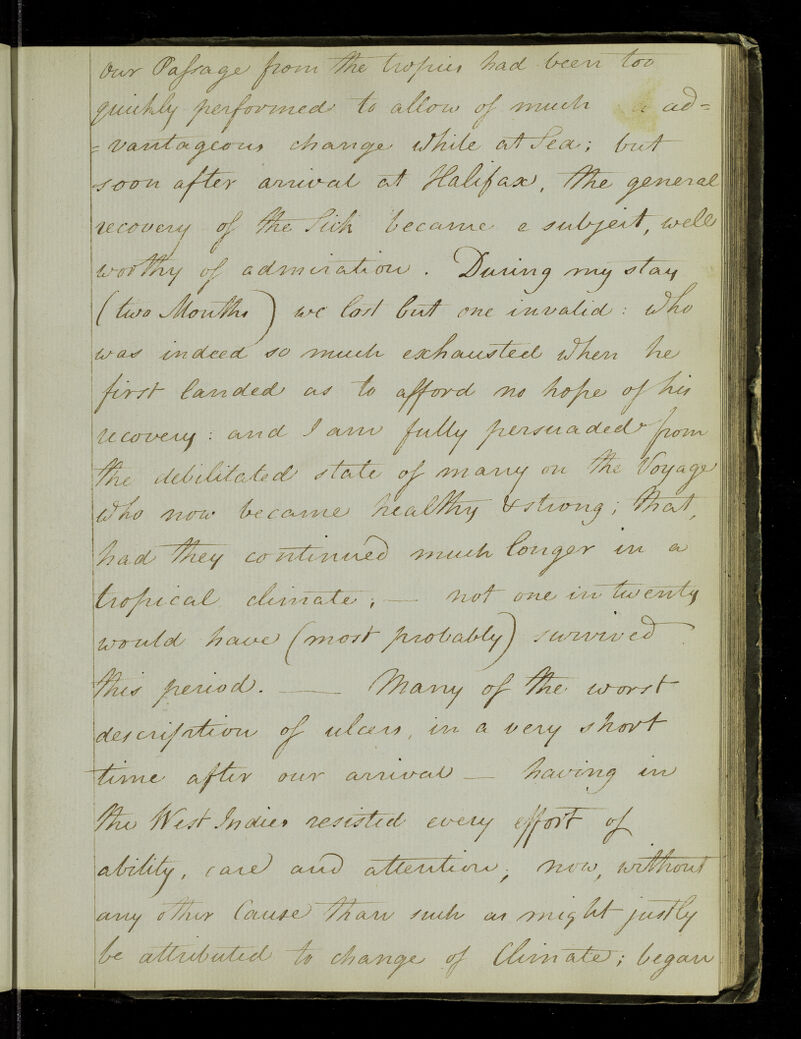 our Passage from the tropics had been too
quickly performed to allow of much ad=
=vantageous change while at Sea; but
soon after arrival at Halifax, the general
recovery of the Sick became a subject, well
worthy of admiration. During my stay
(two Months) we lost but one invalid: who
was indeed so much exhausted when he
first landed as to afford no hope of his
recovery: and I am fully persuaded from
the debilitated state of many on the Voyage
who now became healthy & strong; that,
had they continued much longer in a
tropical climate; — not one in twenty
would have (most probably) survived
this period. —— Many of the worst
description of ulcers, in a very short
time after our arrival — having in
the West Indies resisted every effort of
ability, care and attention; now, without
any other Cause than such as might justly
be attributed to change of Climate; began